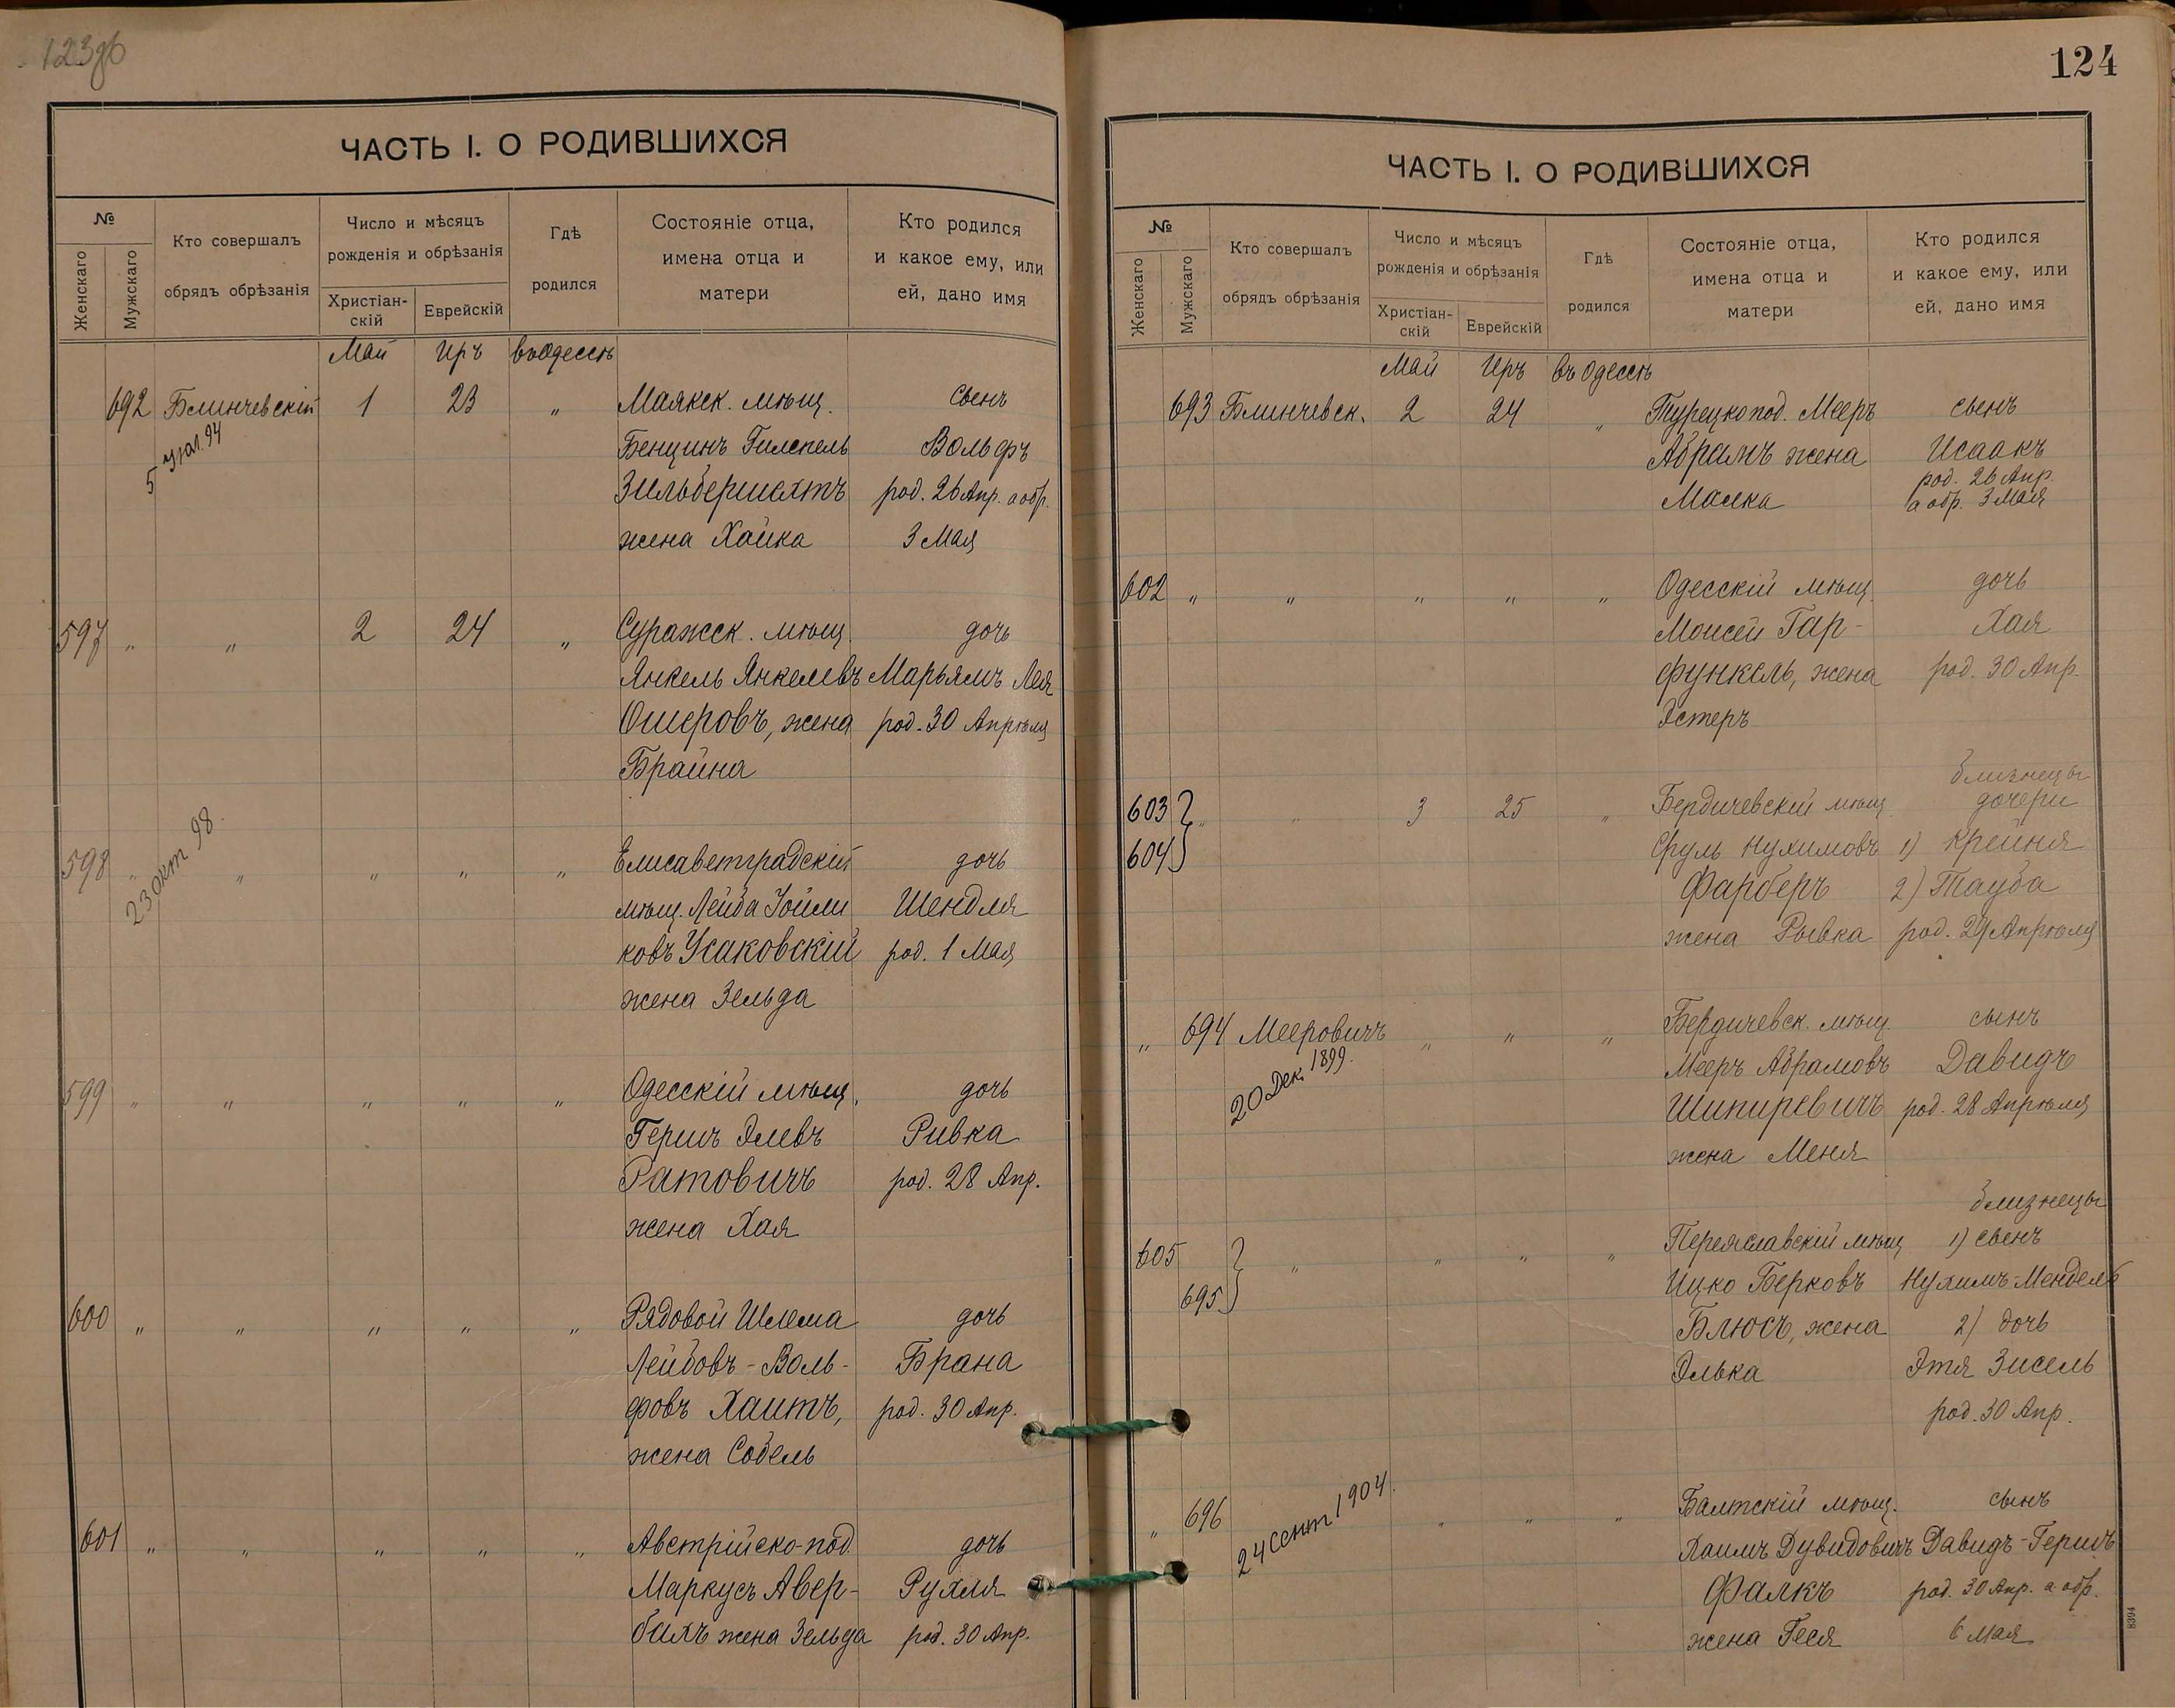 123об
ЧАСТЬ I. О РОДИВШИХСЯ
№
Женскаго
Мужскаго
Кто совершалъ
обрядъ обрѣзанія
Число и мѣсяцъ
рожденія и обрѣзанія
Христіан-
скій
Еврейскій
Гдѣ
родился
Состояніе отца,
имена отца и
матери
Кто родился
и какое ему, или
ей, дано имя
Май Иръ въ Одессѣ
692 Блинчевскій 1 23 „ Маякск. мѣщ. сынъ
Бенціинъ Вольфъ
Зильбершехтъ род. 26 Апр. а обр.
жена Хайка 3 Мая
597 „ „ 2 24 „ Суражск. мѣщ. дочь
Янкель Янкелевъ Марьямъ Лея
Ошеровъ, жена род. 30 Апрѣля
Брайна
598 „ „ „ „ „ Елисаветградскій дочь
23 окт 98.
мѣщ. Лейба Шендля
ковъ Усаковскій род. 1 Мая
жена Зельда
599 „ „ „ „ „ Одесскій мѣщ. дочь
Гершъ Элевъ Ривка
Ратовичъ род. 28 Апр.
жена Хая
600 „ „ „ „ „ Рядовой Шлема дочь
Лейбовъ-Воль- Брана
фовъ Хаитъ, род. 30 Апр.
жена Собель
601 „ „ „ „ „ Австрійско-под. дочь
Маркусъ Авер- Рухля
бахъ жена Зельда род. 30 Апр.
124
ЧАСТЬ I. О РОДИВШИХСЯ
№
Женскаго
Мужскаго
Кто совершалъ
обрядъ обрѣзанія
Число и мѣсяцъ
рожденія и обрѣзанія
Христіан-
скій
Еврейскій
Гдѣ
родился
Состояніе отца,
имена отца и
матери
Кто родился
и какое ему, или
ей, дано имя
Май Иръ въ Одессѣ
693 Блинчевск. 2 24 „ Турецкопод. Мееръ сынъ
Абрамъ жена Исаакъ
Малка род. 26 Апр.
а обр. 3 Мая
602 „ „ „ „ „ Одесскій мѣщ. дочь
Моисей Гар- Хая
функель, жена род. 30 Апр.
Эстеръ
близнецы
603 „ „ 3 25 „ Бердичевскій мѣщ. дочери
604 Сруль Нухимовъ 1) Крейня
Фарберъ 2) Тауба
жена Рывка род. 29 Апрѣля
„ 694 Мееровичъ „ „ „ Бердичевск. мѣщ. сынъ
20 Дек. 1899.
Мееръ Абрамовъ Давидъ
Шпиревичъ род. 28 Апрѣля
жена Меня
близнецы
605 „ „ „ „ Переяславскій мѣщ. 1) сынъ
695 Ицко Берковъ Нухимъ-Мендель
Блюсъ, жена 2) дочь
Элька Этя Зисель
род. 30 Апр.
„ 696 „ „ „ Балтскій мѣщ. сынъ
24 сент 1904.
Хаимъ Дувидовичъ Давидъ-Гершъ
Фалкъ род. 30 Апр. а обр.
жена Геся 6 мая
8394